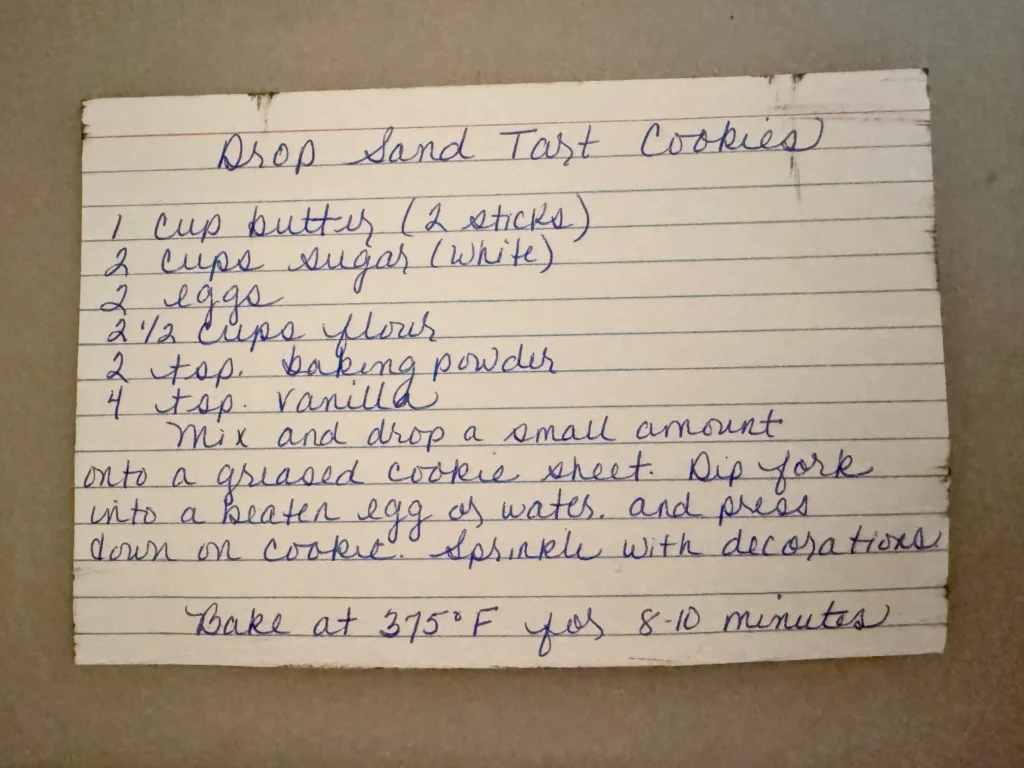 Drop Sand Tart Cookies
1 cup butter (2 sticks)
2 cups sugar (white)
2 eggs
2 1/2 cups flour
2 tsp. baking powder
4 tsp. vanilla
Mix and drop a small amount
onto a greased cookie sheet. Dip fork
into a beaten egg or water. and press
down on cookie. Sprinkle with decorations
Bake at 375°F for 8-10 minutes